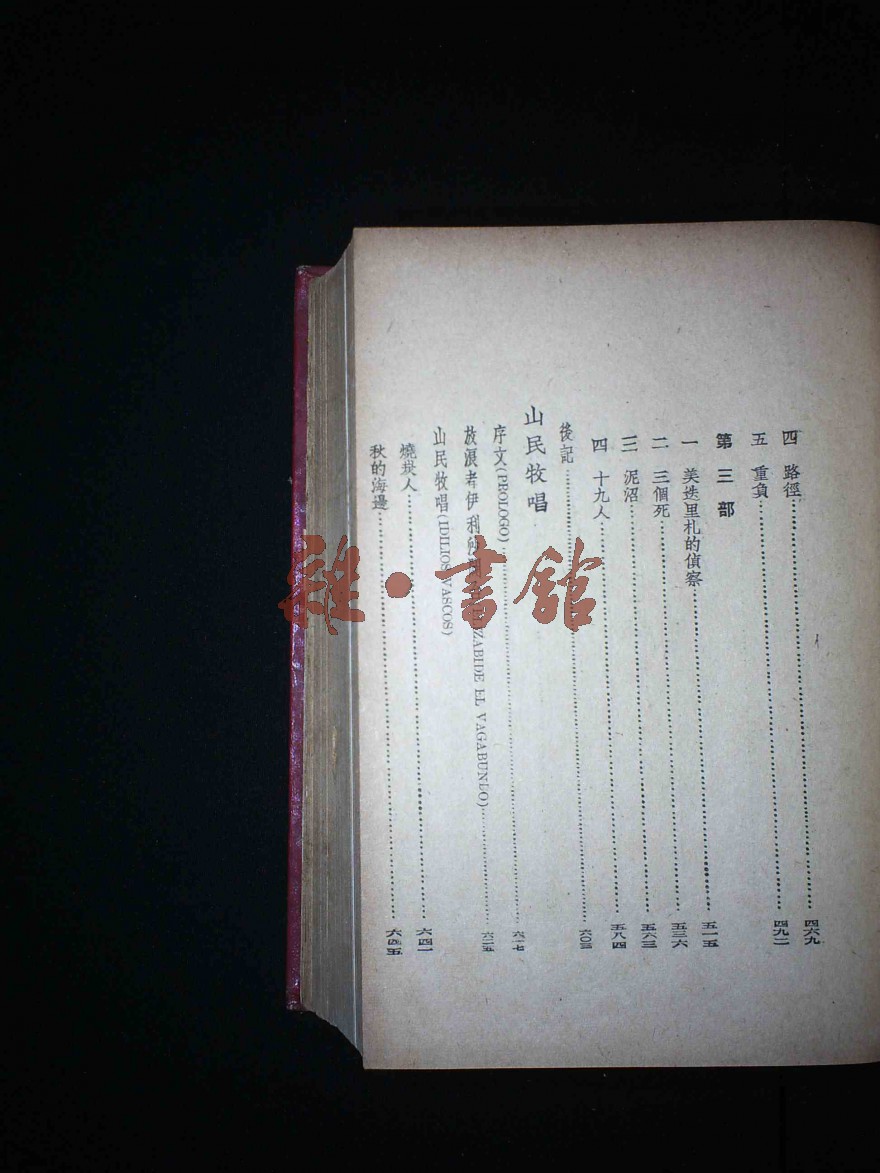 四 路徑 四六九
五 重負 四九二
第三部
一 美迭里札的偵察 五一五
二 三個死 五三六
三 泥沼 五六三
四 十九人 五八四
後記 六〇三
山民牧唱
序文(PROLOGO) 六一七
放浪者伊利 ZABIDE EL VAGABUNDO) 六二五
山民牧唱(IDILIOS VASCOS)
燒炭人 六四一
秋的海邊 六四五
雜·書館